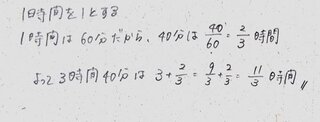 1時間を1とする
1時間は60分だから、40分は 40/60 = 2/3 時間
よって3時間40分は 3 + 2/3 = 9/3 + 2/3 = 11/3 時間 〃